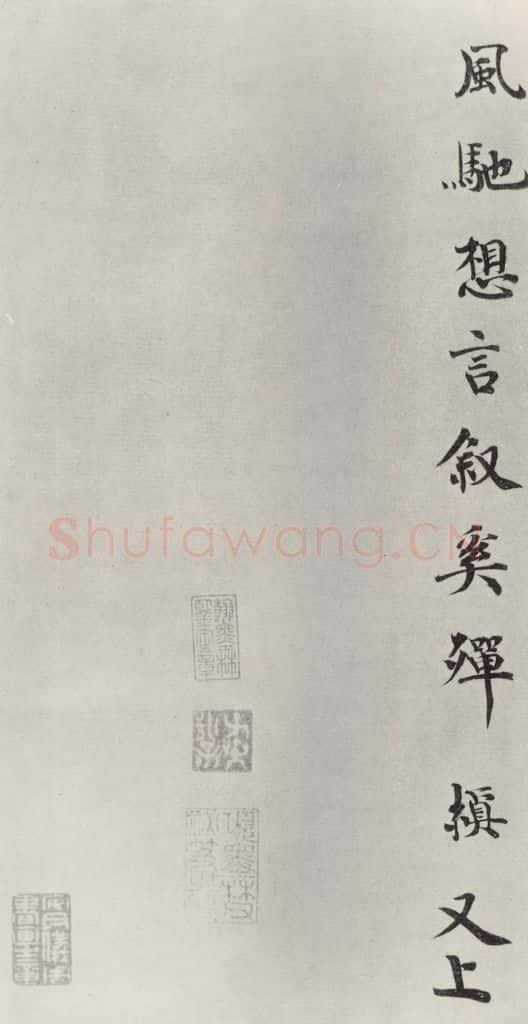 風馳想言叙奚殫縝又上
Shufawang.CN